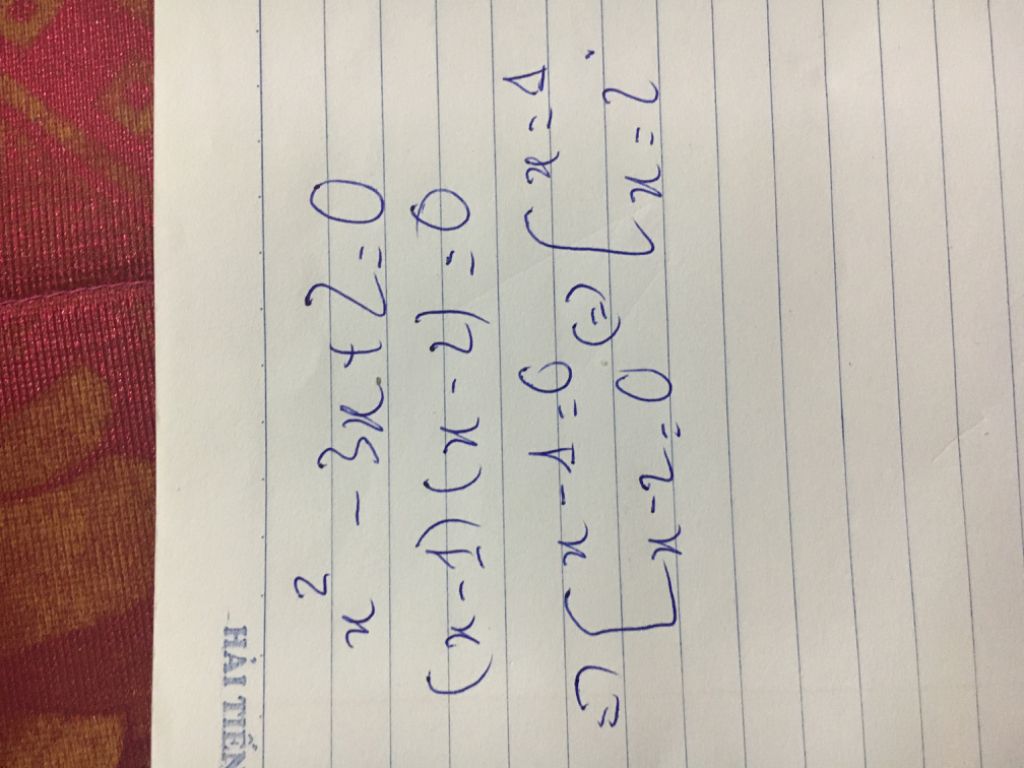 HẢI TIẾN
x² - 3x + 2 = 0
(x - 1)(x - 2) = 0
=> [ x - 1 = 0 (=) [ x = 1
x - 2 = 0 x = 2